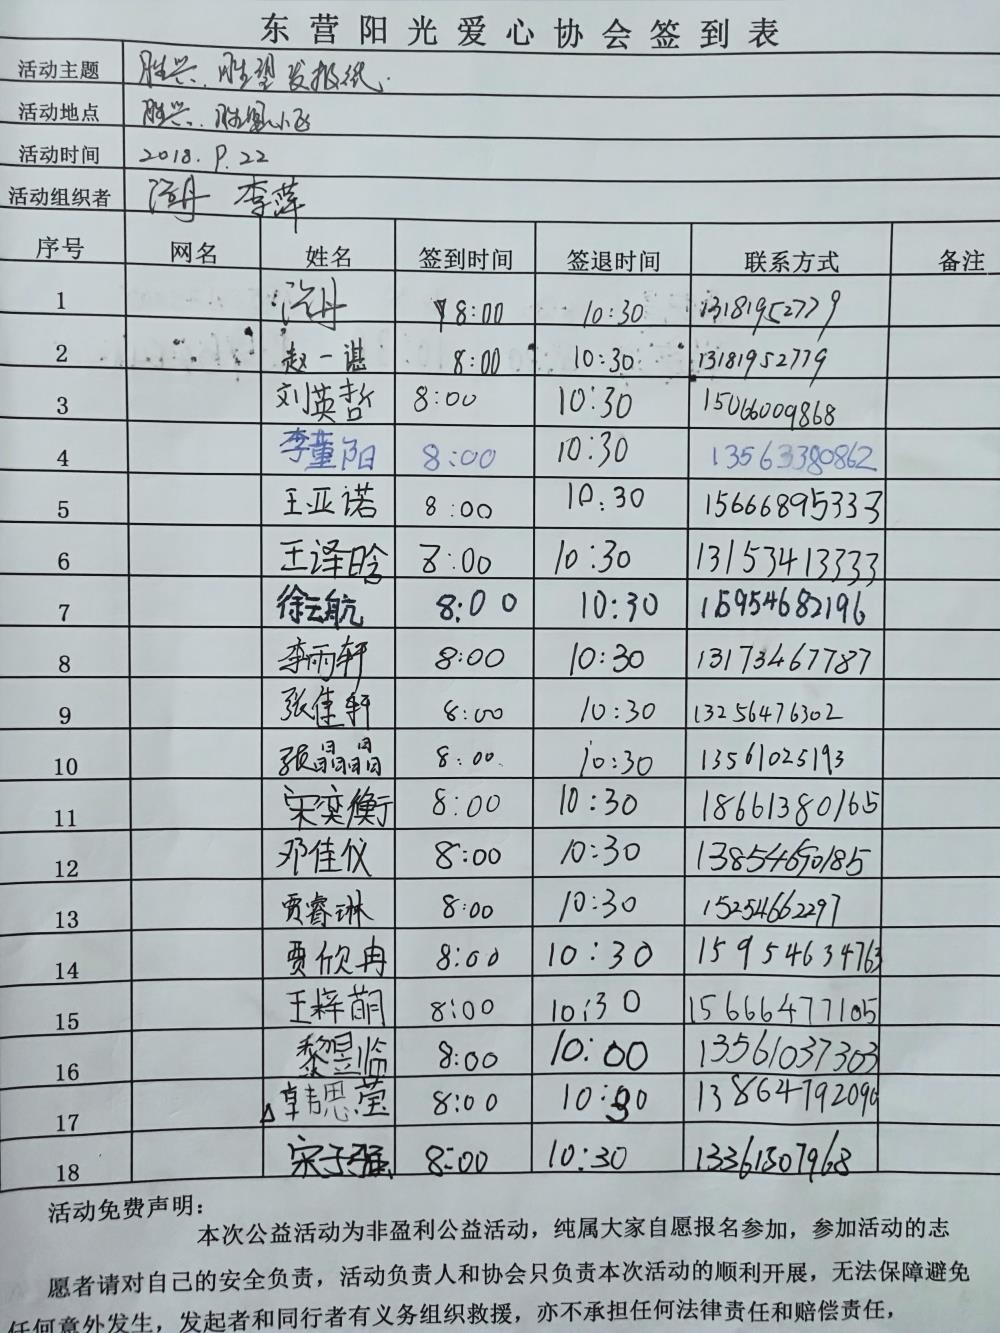 东营阳光爱心协会签到表
活动主题 胜兴、胜望发报纸.
活动地点 胜兴、胜望小区
活动时间 2018.9.22
活动组织者 丹 李萍
序号 网名 姓名 签到时间 签退时间 联系方式 备注
1 丹 8:00 10:30 13181952779
2 赵一谌 8:00 10:30 13181952779
3 刘英哲 8:00 10:30 15066009868
4 李童阳 8:00 10:30 13563380862
5 王亚诺 8:00 10:30 15666895333
6 王译晗 8:00 10:30 13153413333
7 徐云航 8:00 10:30 15954682196
8 李雨轩 8:00 10:30 13173467787
9 张佳轩 8:00 10:30 13256476302
10 张晶晶 8:00 10:30 13561025193
11 宋奕衡 8:00 10:30 18661380165
12 邓佳仪 8:00 10:30 13854690185
13 贾睿琳 8:00 10:30 15254662297
14 贾欣冉 8:00 10:30 15954634763
15 王梓萌 8:00 10:30 15666477105
16 黎昱临 8:00 10:00 13561037303
17 韩思莹 8:00 10:30 13864792090
18 宋子强 8:00 10:30 13361507968
活动免费声明：
本次公益活动为非盈利公益活动，纯属大家自愿报名参加，参加活动的志
愿者请对自己的安全负责，活动负责人和协会只负责本次活动的顺利开展，无法保障避免
任何意外发生，发起者和同行者有义务组织救援，亦不承担任何法律责任和赔偿责任，